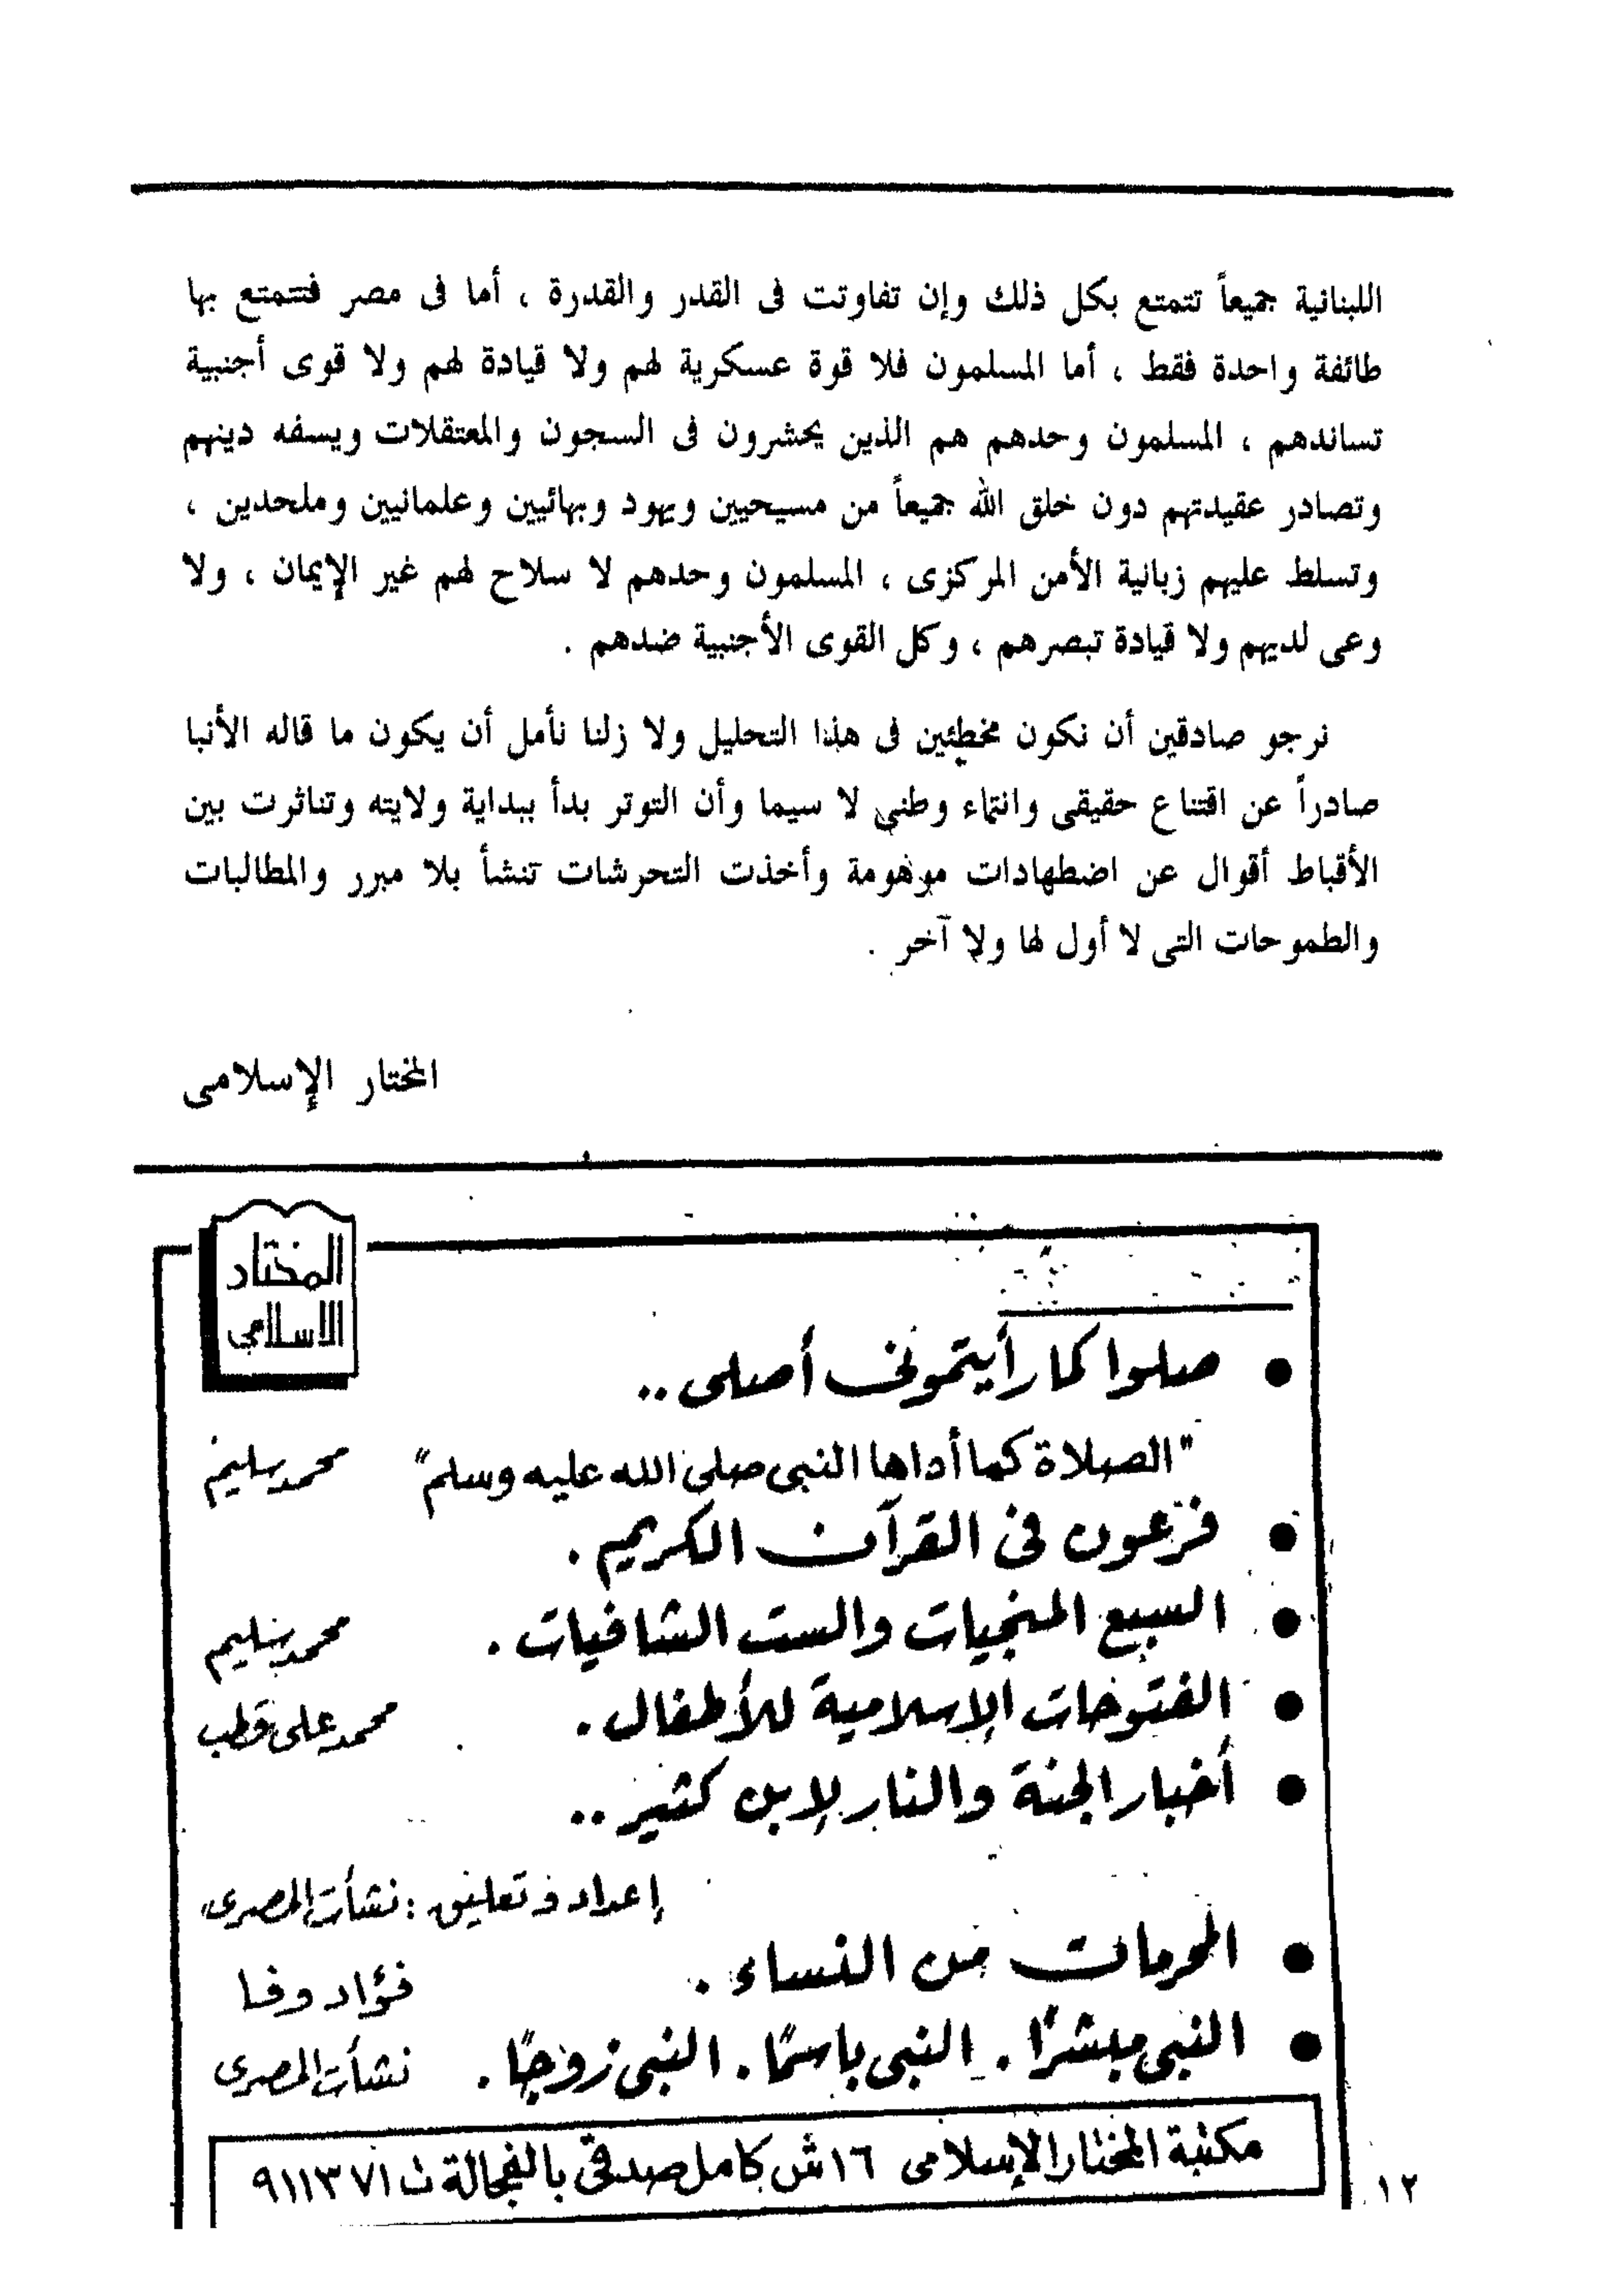 اللبنانية جميعاً تتمتع بكل ذلك وإن تفاوتت فى القدر والقدرة ، أما فى مصر فتتمتع بها
طائفة واحدة فقط ، أما المسلمون فلا قوة عسكرية لهم ولا قيادة لهم ولا قوى أجنبية
تساندهم ، المسلمون وحدهم هم الذين يحشرون فى السجون والمعتقلات ويسفه دينهم
وتصادر عقيدتهم دون خلق الله جميعاً من مسيحيين ويهود وبهائيين وعلمانيين وملحدين ،
وتسلط عليهم زبانية الأمن المركزى ، المسلمون وحدهم لا سلاح لهم غير الإيمان ، ولا
وعى لديهم ولا قيادة تبصرهم ، وكل القوى الأجنبية ضدهم .
نرجو صادقين أن نكون مخطئين فى هذا التحليل ولا زلنا نأمل أن يكون ما قاله الأنبا
صادراً عن اقتناع حقيقى وانتماء وطني لا سيما وأن التوتر بدأ ببداية ولايته وتناثرت بين
الأقباط أقوال عن اضطهادات موهومة وأخذت التحرشات تنشأ بلا مبرر والمطالبات
والطموحات التى لا أول لها ولا آخر .
المختار الإسلامى
المختار
الاسلامي
● صلوا كما رأيتمونى أصلى ..
"الصلاة كما أداها النبى صلى الله عليه وسلم" محمد سليم
● فرعون فى القرآن الكريم .
● السبع المنجيات والست الشافيات . محمد سليم
● الفتوحات الإسلامية للأطفال . محمد على قطب
● أخبار الجنة والنار لابن كثير ..
إعداد وتعليق : نشأت المصرى
● المحرمات من النساء . فؤاد وفا
● النبى مبشرًا . النبى باسمًا . النبى زوجًا . نشأت المصرى
مكتبة المختار الإسلامى ١٦ ش كامل صدقى بالفجالة ت ٩١١٣٧١
١٢